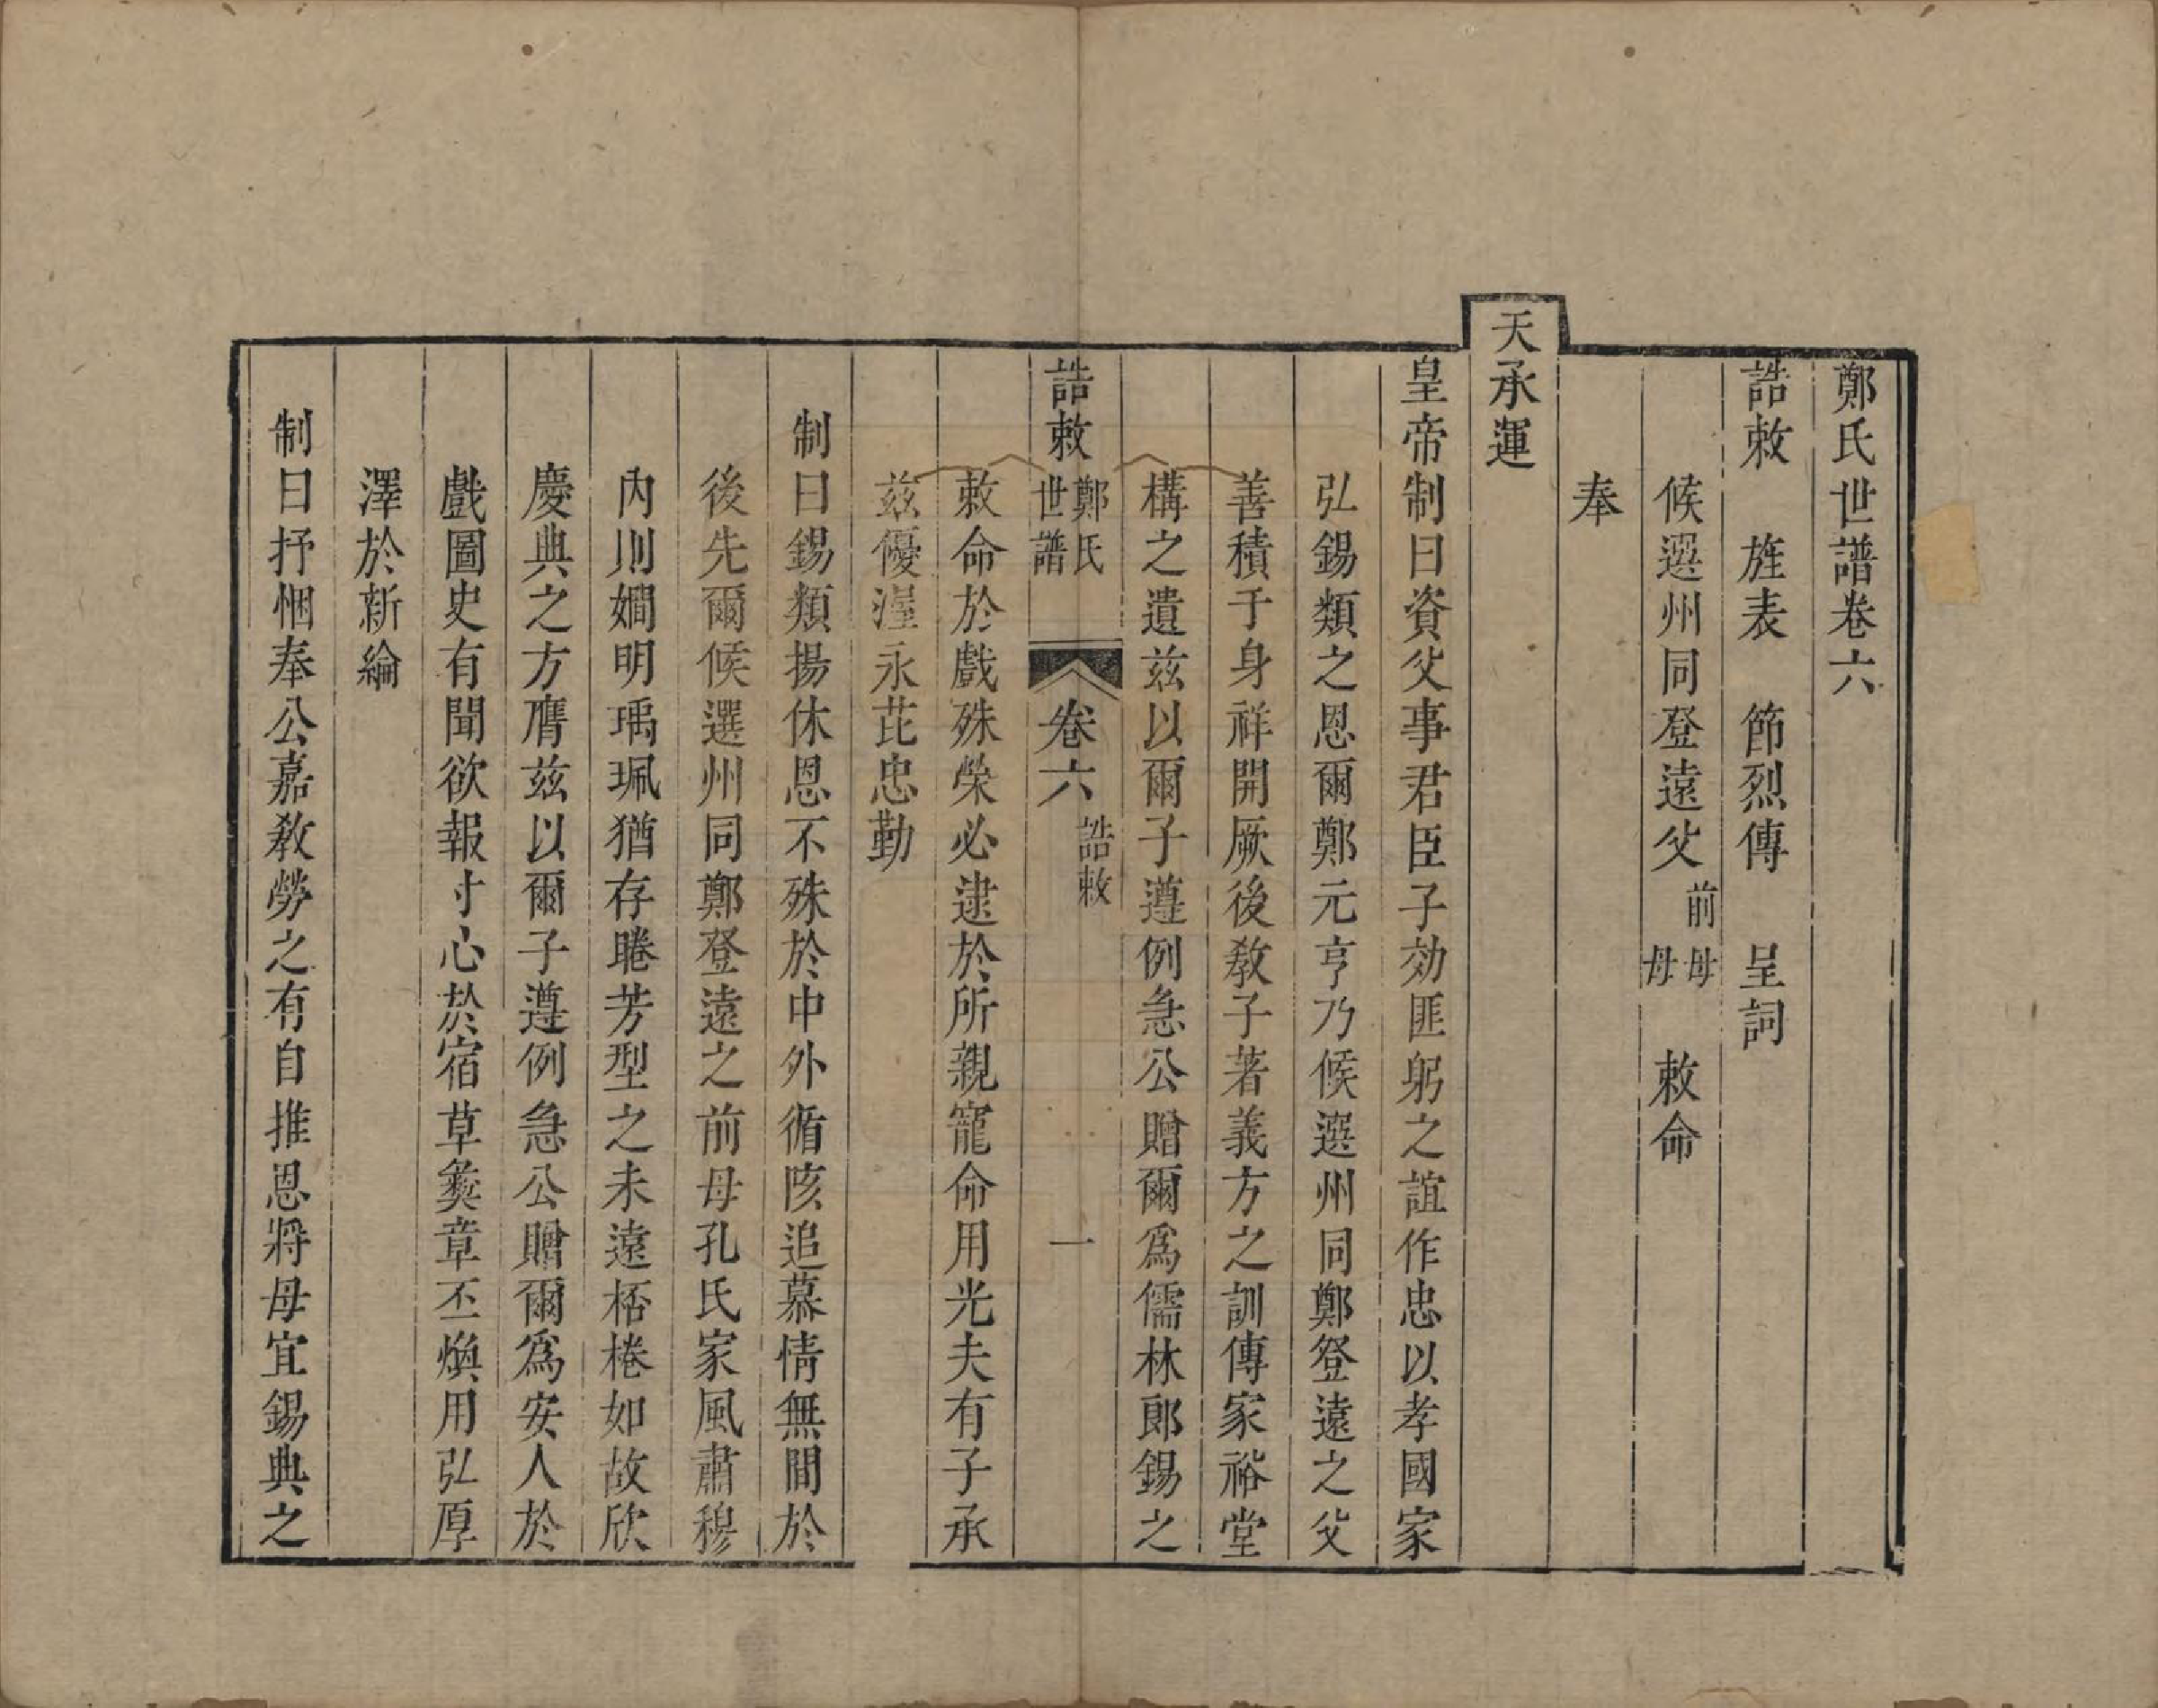 鄭氏世譜卷六
誥敕　旌表　節烈傳　呈詞
候選州同登遠父前母母　敕命
奉
天承運
皇帝制曰資父事君臣子効匪躬之誼作忠以孝國家
弘錫類之恩爾鄭元亨乃候選州同鄭登遠之父
善積于身祥開厥後敎子著義方之訓傳家裕堂
構之遺兹以爾子遵例急公贈爾爲儒林郎錫之
誥敕　鄭氏世譜　卷六　誥敕　一
敕命於戲殊榮必逮於所親寵命用光夫有子承
兹優渥永芘忠勤
制曰錫類揚休恩不殊於中外循陔追慕情無間於
後先爾候選州同鄭登遠之前母孔氏家風肅穆
內則嫺明瑀珮猶存睠芳型之未遠桮棬如故欣
慶典之方膺兹以爾子遵例急公贈爾爲安人於
戲圖史有聞欲報寸心於宿草彝章丕煥用弘厚
澤於新綸
制曰抒悃奉公嘉敎勞之有自推恩將母宜錫典之